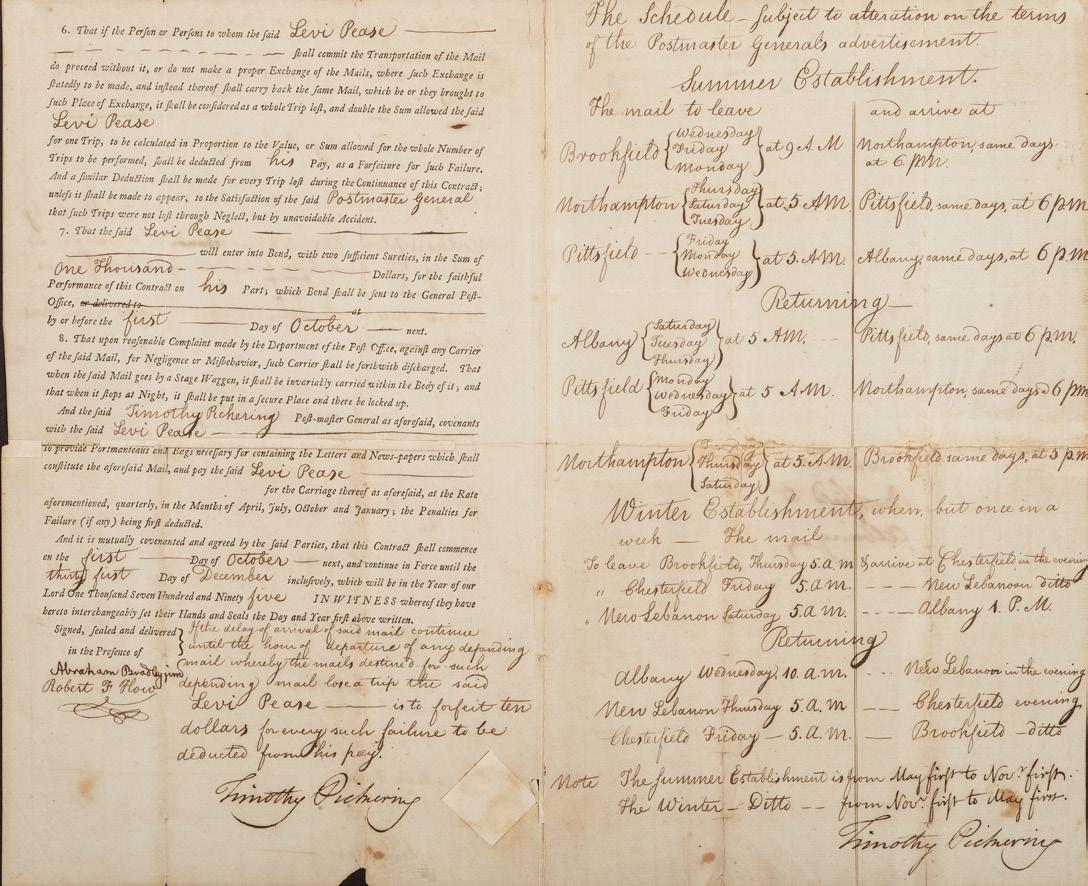 6. That if the Person or Persons to whom the said Levi Pease
shall commit the Transportation of the Mail
do proceed without it, or do not make a proper Exchange of the Mails, where such Exchange is
statedly to be made, and instead thereof shall carry back the same Mail, which he or they brought to
such Place of Exchange, it shall be considered as a whole Trip lost, and double the Sum allowed the said
Levi Pease
for one Trip, to be calculated in Proportion to the Value, or Sum allowed for the whole Number of
Trips to be performed, shall be deducted from his Pay, as a Forfeiture for such Failure.
And a similar Deduction shall be made for every Trip lost during the Continuance of this Contract;
unless it shall be made to appear, to the Satisfaction of the said Postmaster General
that such Trips were not lost through Neglect, but by unavoidable Accident.
7. That the said Levi Pease
will enter into Bond, with two sufficient Sureties, in the Sum of
One Thousand Dollars, for the faithful
Performance of this Contract on his Part; which Bond shall be sent to the General Post-
Office, or delivered to at
by or before the first Day of October next.
8. That upon reasonable Complaint made by the Department of the Post Office, against any Carrier
of the said Mail, for Negligence or Misbehavior, such Carrier shall be forthwith discharged. That
when the said Mail goes by a Stage Waggon, it shall be invariably carried within the Body of it; and
that when it stops at Night, it shall be put in a secure Place and there be locked up.
And the said Timothy Pickering Post-master General as aforesaid, covenants
with the said Levi Pease
to provide Portmanteaus and Bags necessary for containing the Letters and News-papers which shall
constitute the aforesaid Mail, and pay the said Levi Pease
for the Carriage thereof as aforesaid, at the Rate
aforementioned, quarterly, in the Months of April, July, October and January; the Penalties for
Failure (if any) being first deducted.
And it is mutually covenanted and agreed by the said Parties, that this Contract shall commence
on the first Day of October next, and continue in Force until the
thirty first Day of December inclusively, which will be in the Year of our
Lord One Thousand Seven Hundred and Ninety five IN WITNESS whereof they have
hereto interchangeably set their Hands and Seals the Day and Year first above written.
Signed, sealed and delivered
in the Presence of
Abraham Bradley junr
Robert F. How
If the delay of arrival of said mail continue
until the hour of departure of any depending
mail whereby the mails destined for such
depending mail lose a trip the said
Levi Pease is to forfeit ten
dollars for every such failure to be
deducted from his pay.
Timothy Pickering
The Schedule – subject to alteration on the terms
of the Postmaster General's advertisement.
Summer Establishment.
The mail to leave and arrive at
Brookfield { Wednesday Friday Monday } at 9 A.M Northampton, same days
at 6 p.m.
Northampton { Thursday Saturday Tuesday } at 5 A.M. Pittsfield, same days, at 6 p.m
Pittsfield -- { Friday Monday Wednesday } at 5 A.M. Albany, same days, at 6 p.m
Returning —
Albany { Saturday Tuesday Thursday } at 5 A.M. Pittsfield, same days at 6 p.m.
Pittsfield { Monday Wednesday Friday } at 5 A.M. Northampton, same days 6 p.m
Northampton { Thursday Saturday } at 5 A.M. Brookfield same days, at 5 p.m
Winter Establishment, when, but once in a
week — The mail
To leave Brookfield, Thursday 5. a. m & arrive at Chesterfield in the evening
" Chesterfield Friday 5. a. m. -- New Lebanon ditto
" New Lebanon Saturday 5. a. m. ---- Albany 1. P. M.
Returning
Albany Wednesday, 10. a. m. --- New Lebanon in the evening
New Lebanon Thursday 5. a. m — Chesterfield evening
Chesterfield Friday – 5. a. m. — Brookfield – ditto
Note The Summer Establishment is from May first to Novr first.
The Winter – Ditto -- from Novr first to May first.
Timothy Pickering